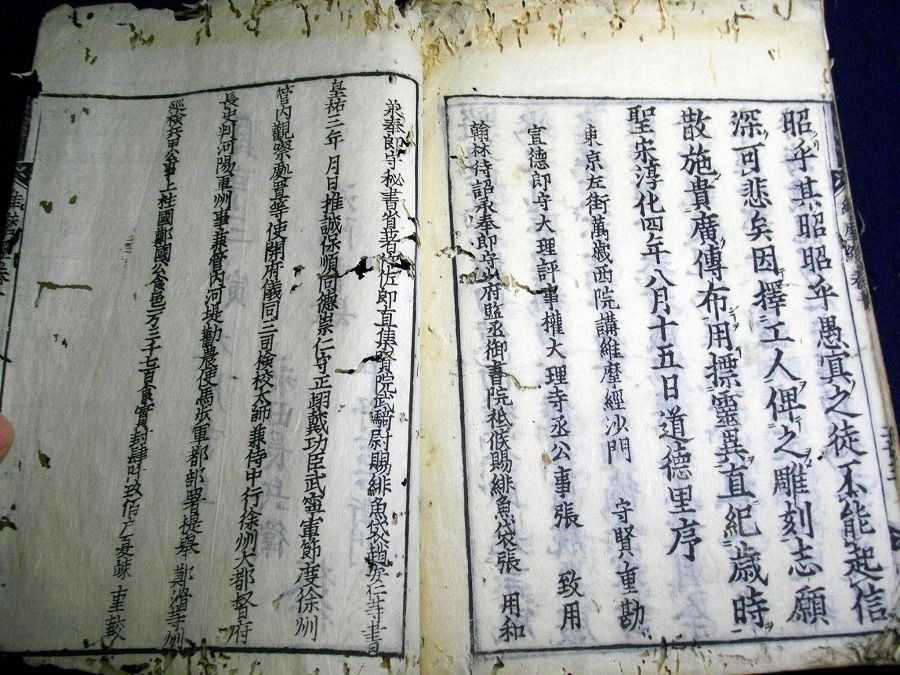 昭乎其昭昭乎愚冥之徒不能起信
深可悲矣因擇工人俾之雕刻志願
散施貴廣傳布用標靈異直紀歳時
聖宋淳化四年八月十五日道德里序
東京左街萬歳西院講維摩經沙門 守賢 重勘
宣德郎守大理評事權大理寺丞公事張 致用
翰林待詔承奉郎守少府監丞御書院祗候賜緋魚袋張 用和
承奉郎守秘書省著作佐郎直集賢院武騎尉賜緋魚袋趙安仁等書
皇祐三年 月日推誠保順同德崇仁守正翊戴功臣武寧軍節度徐州
管内觀察處置等使開府儀同三司檢校太師兼侍中行徐州大都督府
長史判河陽軍州事兼管内河堤勸農使馬歩軍都部署提舉 鄭滑等州
巡檢兵甲公事上柱國鄭國公食邑一万三千七百食實封肆阡玖佰户夏竦 重挍